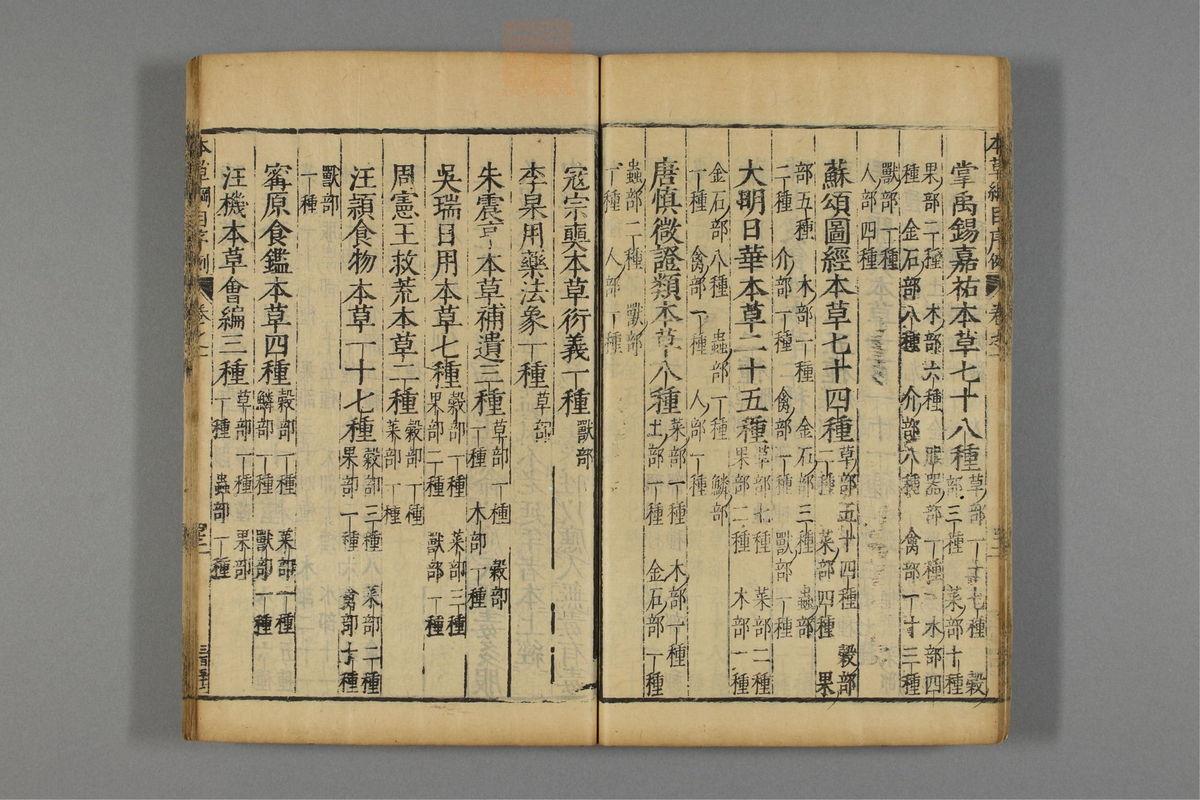 掌禹錫嘉祐本草七十八種草部一十七種 穀
部三種 菜部十種
果部二種 木部六種 服器部一種 水部四
種 金石部八種 介部八種 禽部一十三種
獸部一種
人部四種
蘇頌圖經本草七十四種草部五十四種 穀部
二種 菜部四種 果
部五種 木部一種 金石部三種 蟲部
二種 介部一種 禽部一種 獸部一種
大明日華本草二十五種草部七種 菜部二種
果部二種 木部一種
金石部八種 蟲部一種 鱗部
一種 禽部一種 人部一種
唐慎微證類本草八種菜部一種 木部一種
土部一種 金石部一種
蟲部二種 獸部
一種 人部一種
寇宗奭本草衍義一種獸部
李杲用藥法象一種草部
朱震亨本草補遺三種草部一種 穀部
一種 木部一種
吳瑞日用本草七種穀部一種 菜部三種
果部二種 獸部一種
周憲王救荒本草二種穀部一種
菜部一種
汪頴食物本草一十七種穀部三種 菜部二種
果部一種 禽部十種
獸部
一種
甯原食鑑本草四種穀部一種 菜部一種
鱗部一種 獸部一種
汪機本草會編三種草部一種 果部
一種 蟲部一種
本草綱目序例